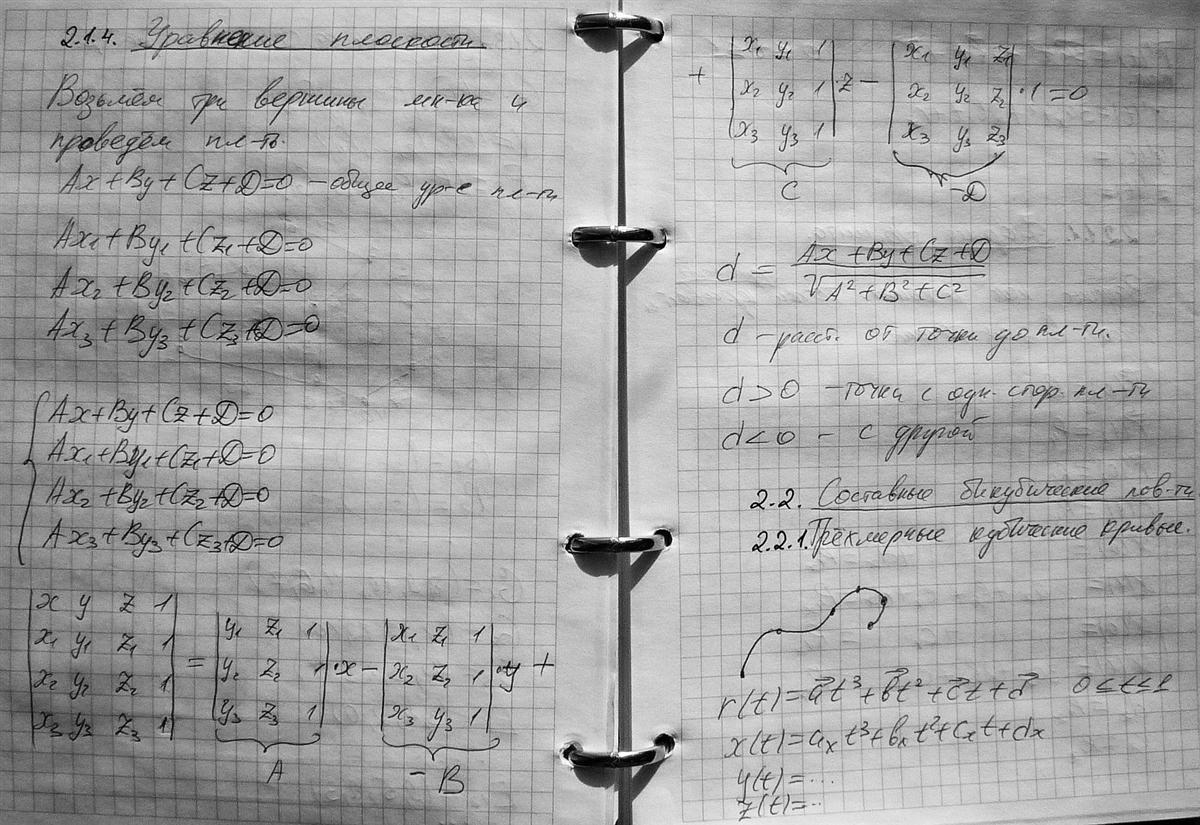 2.1.4. Уравнение плоскости.
Возьмём три вершины мн-ка и
проведём пл-ть.
Ax+By+Cz+D=0 – общее ур-е пл-ти
Ax₁+By₁+Cz₁+D=0
Ax₂+By₂+Cz₂+D=0
Ax₃+By₃+Cz₃+D=0
{ Ax+By+Cz+D=0
Ax₁+By₁+Cz₁+D=0
Ax₂+By₂+Cz₂+D=0
Ax₃+By₃+Cz₃+D=0
|x y z 1|
|x₁ y₁ z₁ 1| |y₁ z₁ 1| |x₁ z₁ 1|
|x₂ y₂ z₂ 1| = |y₂ z₂ 1|·x – |x₂ z₂ 1|·y +
|x₃ y₃ z₃ 1| |y₃ z₃ 1| |x₃ y₃ 1|
A –B
|x₁ y₁ 1| |x₁ y₁ z₁|
+ |x₂ y₂ 1|·z – |x₂ y₂ z₂|·1=0
|x₃ y₃ 1| |x₃ y₃ z₃|
C –D
d = (Ax+By+Cz+D) / √(A²+B²+C²)
d – расст. от точки до пл-ти.
d>0 – точка с одн. стор. пл-ти
d<0 – с другой
2.2. Составные бикубические пов-ти
2.2.1. Трехмерные кубические кривые.
r(t)=a⃗t³+b⃗t²+c⃗t+d⃗ 0≤t≤1
x(t)=aₓt³+bₓt²+cₓt+dₓ
y(t)=...
z(t)=...